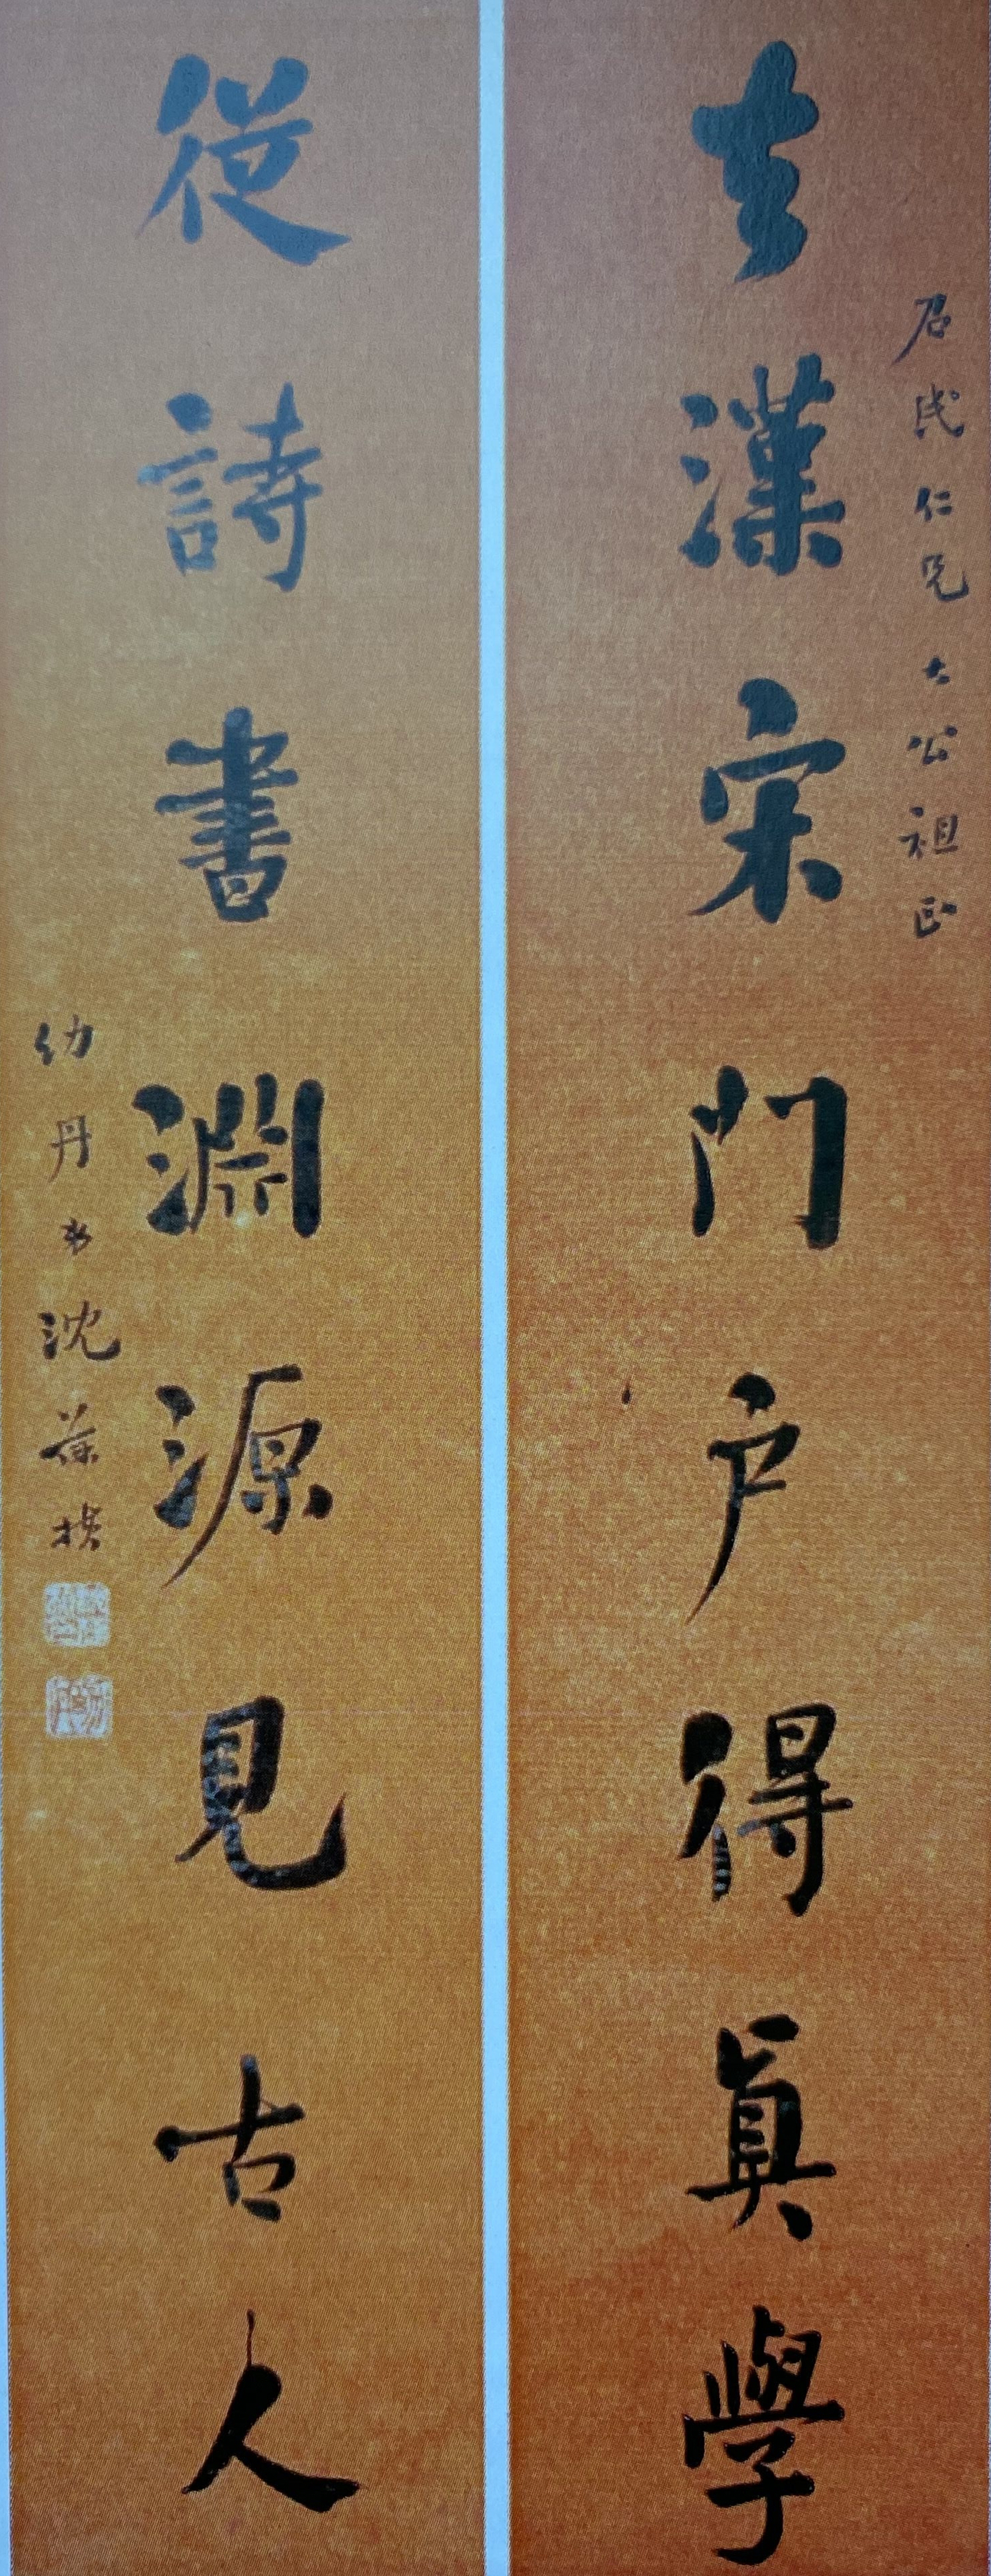 石民仁兄大公祖正
去漢宋門户得真學
從詩書淵源見古人
幼丹弟沈葆楨